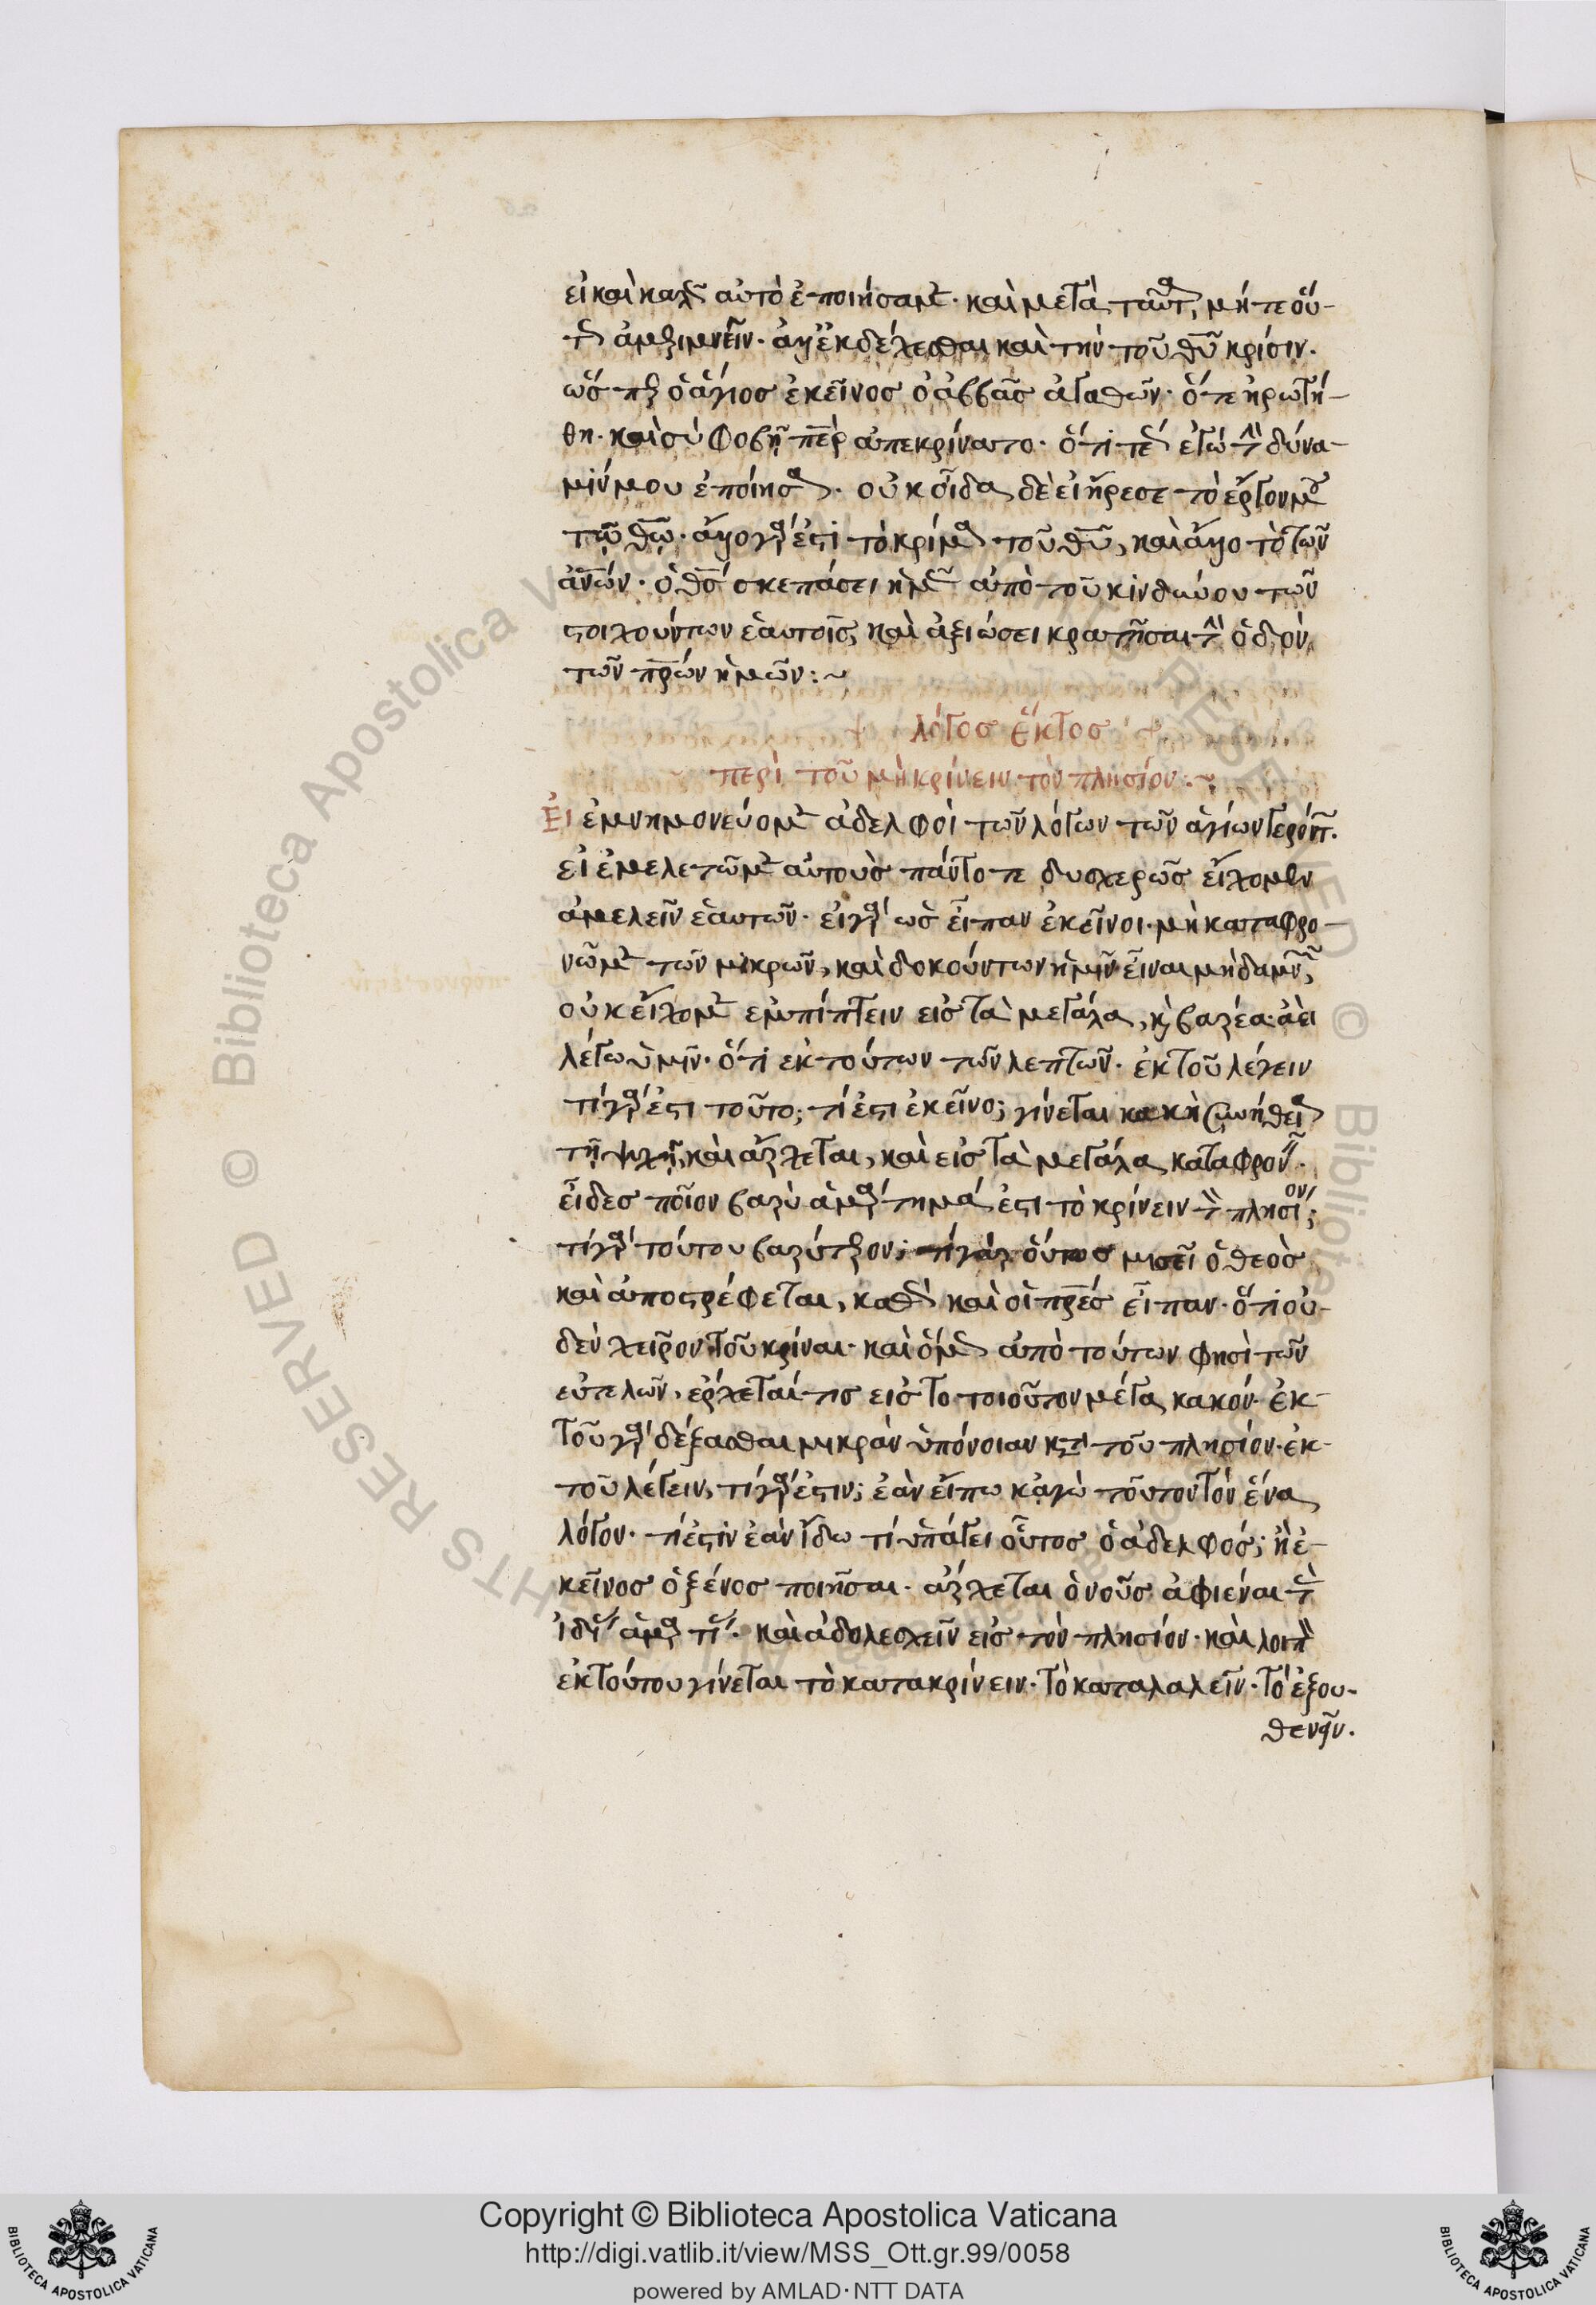 εἰ καὶ καλῶς αὐτὸ ἐποιήσαμεν. καὶ μετὰ ταῦτα, μήτε οὕ-
τως ἀμεριμνεῖν. ἀλλ' ἐκδέχεσθαι καὶ τὴν τοῦ θυ κρίσιν.
ὥσπερ ὁ ἅγιος ἐκεῖνος ὁ ἀββᾶς ἀγαθῶν. ὅτε ἠρωτή-
θη. καὶ σὺ φοβῆ περ ἀπεκρίνατο. ὅτι τέως ἐγὼ τὴν δύνα-
μίν μου ἐποίησα. οὐκ οἶδα δὲ εἰ ἤρεσε τὸ ἔργον μου
τῷ θῷ. ἄλλο γάρ ἐστι τὸ κρίμα τοῦ θυ, καὶ ἄλλο τὸ τῶν
ἀνων. ὁ θς σκεπάσει ἡμᾶς ἀπὸ τοῦ κινδύνου τῶν
στοιχούντων ἑαυτοῖς, καὶ ἀξιώσει κρατῆσαι τὴν ὁδὸν
τῶν πρων ἡμῶν:~
λόγος ἕκτος
περὶ τοῦ μὴ κρίνειν τὸν πλησίον:~
Εἰ ἐμνημονεύομεν ἀδελφοὶ τῶν λόγων τῶν ἁγίων γερόντων.
εἰ ἐμελετῶμεν αὐτοὺς πάντοτε δυσχερῶς εἴχομεν
ἀμελεῖν ἑαυτῶν. εἰ γὰρ ὡς εἶπαν ἐκεῖνοι. μὴ καταφρο-
νῶμεν τῶν μικρῶν, καὶ δοκούντων ἡμῖν εἶναι μηδαμινῶν,
οὐκ εἴχομεν ἐμπίπτειν εἰς τὰ μεγάλα, κὴ βαρέα. ἀεὶ
λέγω ὑμῖν. ὅτι ἐκ τούτων τῶν λεπτῶν. ἐκ τοῦ λέγειν
τί γάρ ἐστι τοῦτο; τί ἐστι ἐκεῖνο; γίνεται κακὴ συνήθεια
τῇ ψυχῇ, καὶ ἄρχεται, καὶ εἰς τὰ μεγάλα καταφρονεῖν.
εἶδες ποῖον βαρὺ ἁμάρτημά ἐστι τὸ κρίνειν τὸν πλησίον;
τί γὰρ τούτου βαρύτερον; τί γὰρ οὕτως μισεῖ ὁ θεὸς
καὶ ἀποστρέφεται, καθὼς καὶ οἱ πρες εἶπαν. ὅτι οὐ-
δὲν χεῖρον τοῦ κρίναι. καὶ ὅμως ἀπὸ τούτων φησὶ τῶν
εὐτελῶν, ἔρχεταί τις εἰς το τοιοῦτον μέγα κακόν. ἐκ-
τοῦ γὰρ δέξασθαι μικρὰν ὑπόνοιαν κατὰ τοῦ πλησίον. ἐκ-
τοῦ λέγειν, τί γάρ ἐστιν; ἐὰν εἴπω κἀγὼ τοῦτον τὸν ἕνα
λόγον. τί ἐστὶν ἐὰν ἴδω τί ὑπάγει οὗτος ὁ ἀδελφός; ἢ ἐ-
κεῖνος ὁ ξένος ποιῆσαι. ἄρχεται ὁ νοῦς ἀφιέναι τὰς
ἰδίας ἁμαρτίας. καὶ ἀδολεσχεῖν εἰς τὸν πλησίον. καὶ λοιπὸν
ἐκ τούτου γίνεται τὸ κατακρίνειν. τὸ καταλαλεῖν. τὸ ἐξου-
θενεῖν.
Copyright © Biblioteca Apostolica Vaticana
http://digi.vatlib.it/view/MSS_Ott.gr.99/0058
powered by AMLAD·NTT DATA